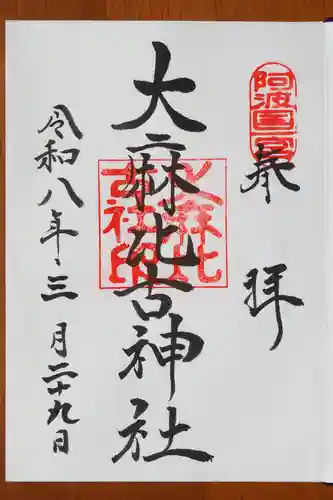 阿波国一宮
奉拝
大麻比古神社
大麻比古社印
令和八年三月二十九日